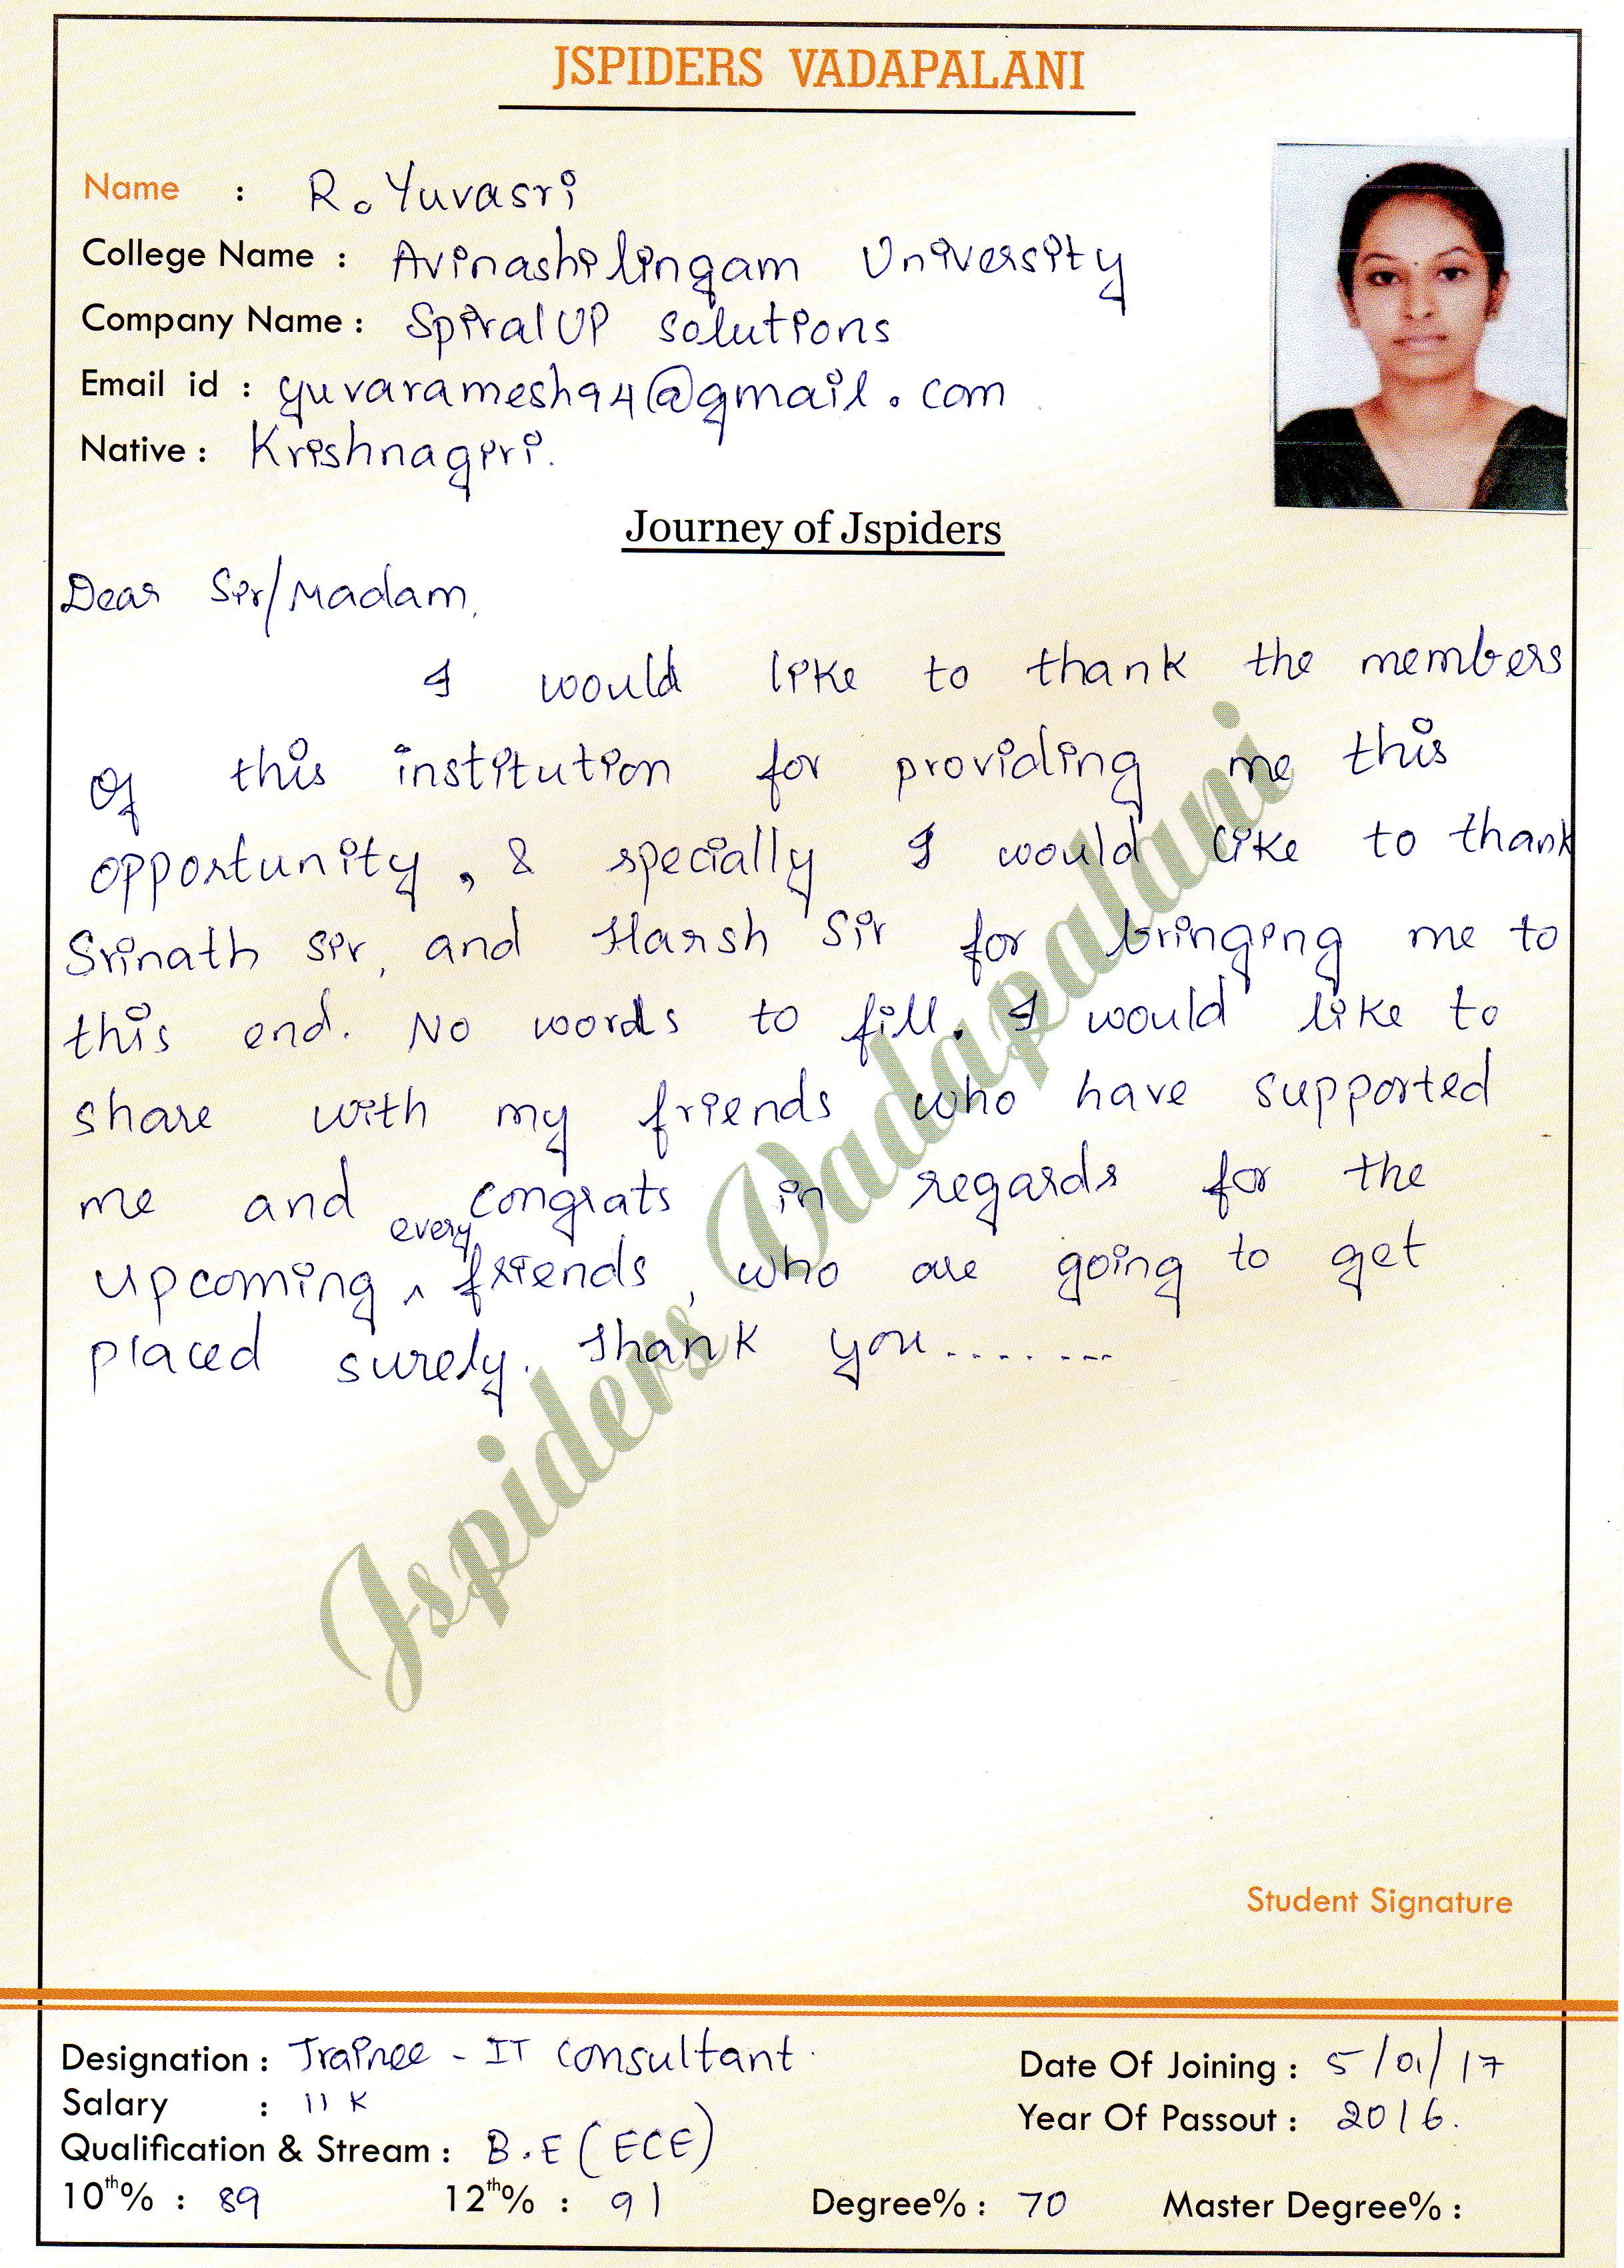 JSPIDERS VADAPALANI
Name : R. Yuvasri
College Name : Avinashilingam University
Company Name : SpiralUP Solutions
Email id : yuvaramesh94@gmail.com
Native : Krishnagiri.
Journey of Jspiders
Dear Sir/Madam,
I would like to thank the members
of this institution for providing me this
opportunity, & specially I would like to thank
Srinath sir, and Harsh Sir for bringing me to
this end. No words to fill. I would like to
share with my friends who have supported
me and congrats in regards for the
upcoming every friends, who are going to get
placed surely. Thank you........
Jspiders Vadapalani
Student Signature
Designation : Trainee - IT Consultant.
Date Of Joining : 5/01/17
Salary : 11 K
Year Of Passout : 2016.
Qualification & Stream : B.E (ECE)
10th% : 89 12th% : 91 Degree% : 70 Master Degree% :